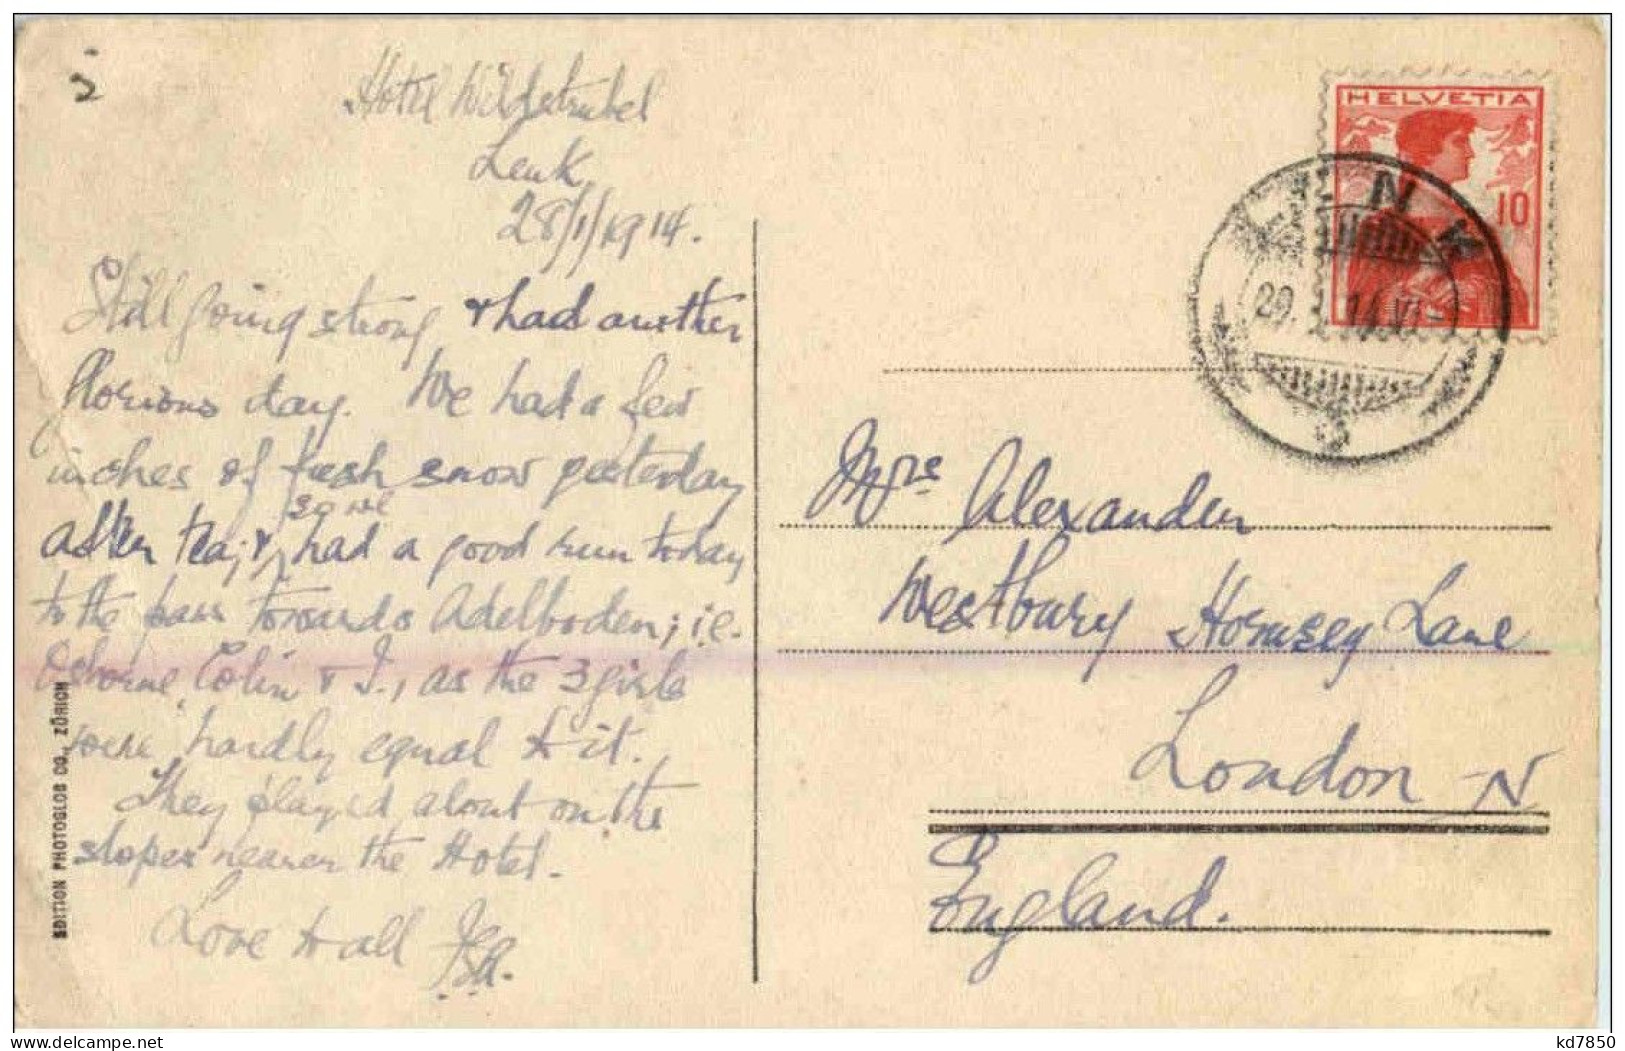 2
Hotel Wildstrubel
Lenk
28/1/1914.
Still going strong & had another
glorious day. We had a few
inches of fresh snow yesterday
after tea; & so we had a good run today
to the pass towards Adelboden; i.e.
Osborne, Colin & I, as the 3 girls
were hardly equal to it.
They played about on the
slopes nearer the Hotel.
Love to all
EDITION PHOTOGLOB CO., ZÜRICH
HELVETIA
10
LENK
Mrs Alexander
Westbury Hornsey Lane
London N
England.
delcampe.net
kd7850